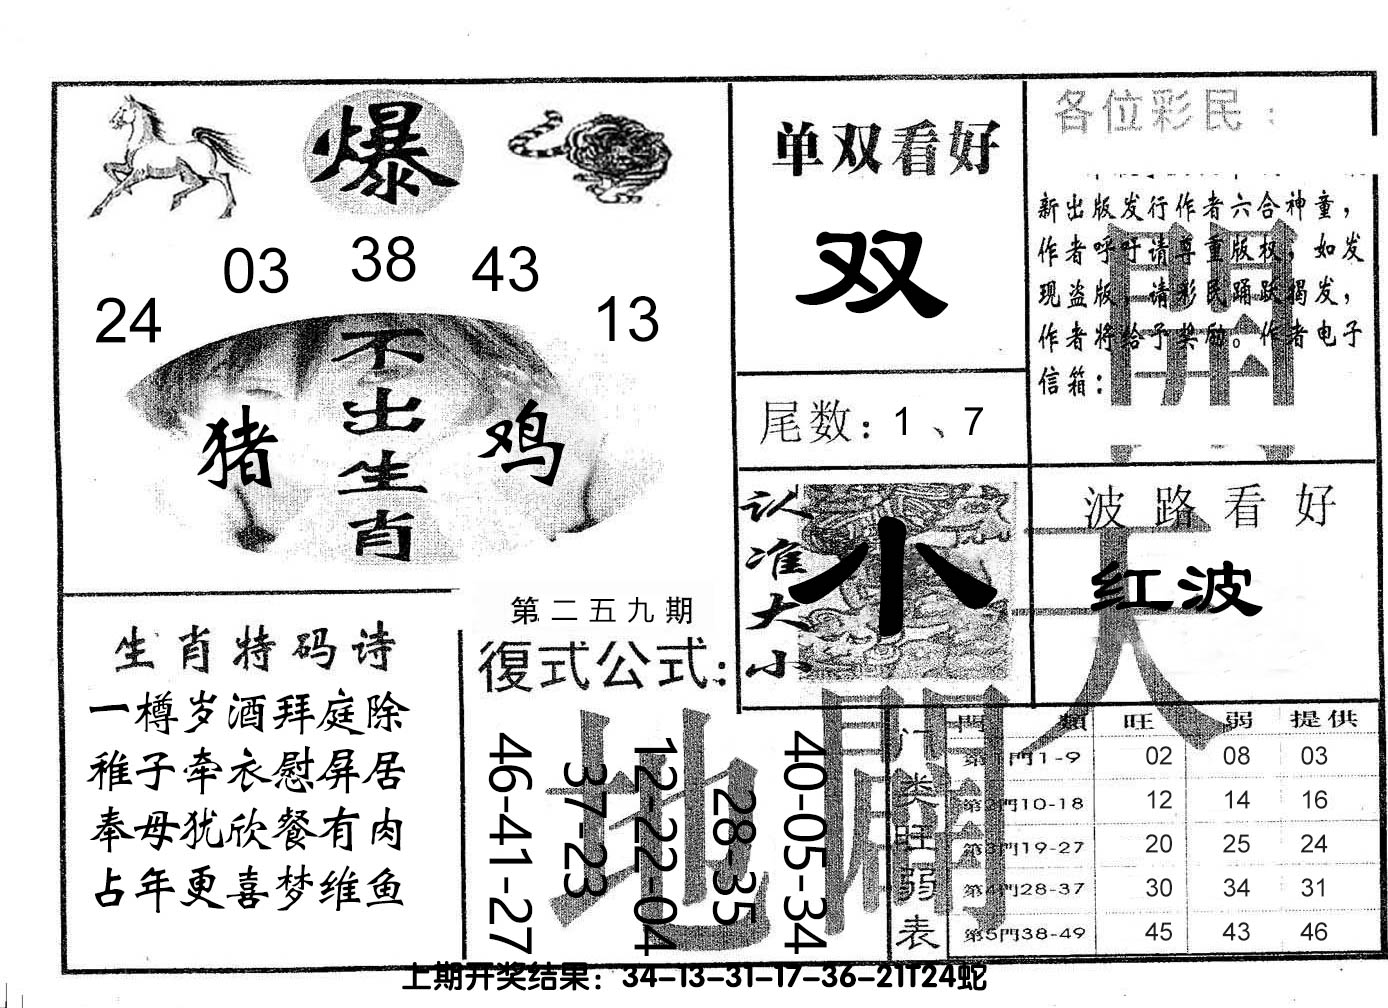 爆
24
03
38
43
13
不出生肖
猪
鸡
单双看好
双
尾数：1、7
各位彩民：
新出版发行作者六合神童，
作者呼吁请尊重版权，如发
现盗版，请彩民踊跃揭发，
作者将给予奖励。作者电子
信箱：
開
认准大小
小
波路看好
红波
天
生肖特码诗
一樽岁酒拜庭除
稚子牵衣慰屏居
奉母犹欣餐有肉
占年更喜梦维鱼
第二五九期
復式公式：
地
開
46-41-27
37-23
12-22-04
28-35
40-05-34
门类旺弱表
門類 旺 弱 提供
第1門1-9 02 08 03
第2門10-18 12 14 16
第3門19-27 20 25 24
第4門28-37 30 34 31
第5門38-49 45 43 46
上期开奖结果：34-13-31-17-36-21T24蛇